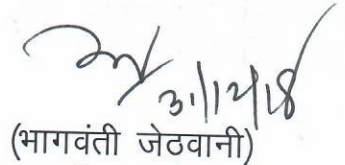 31/12/18
(भागवंती जेठवानी)